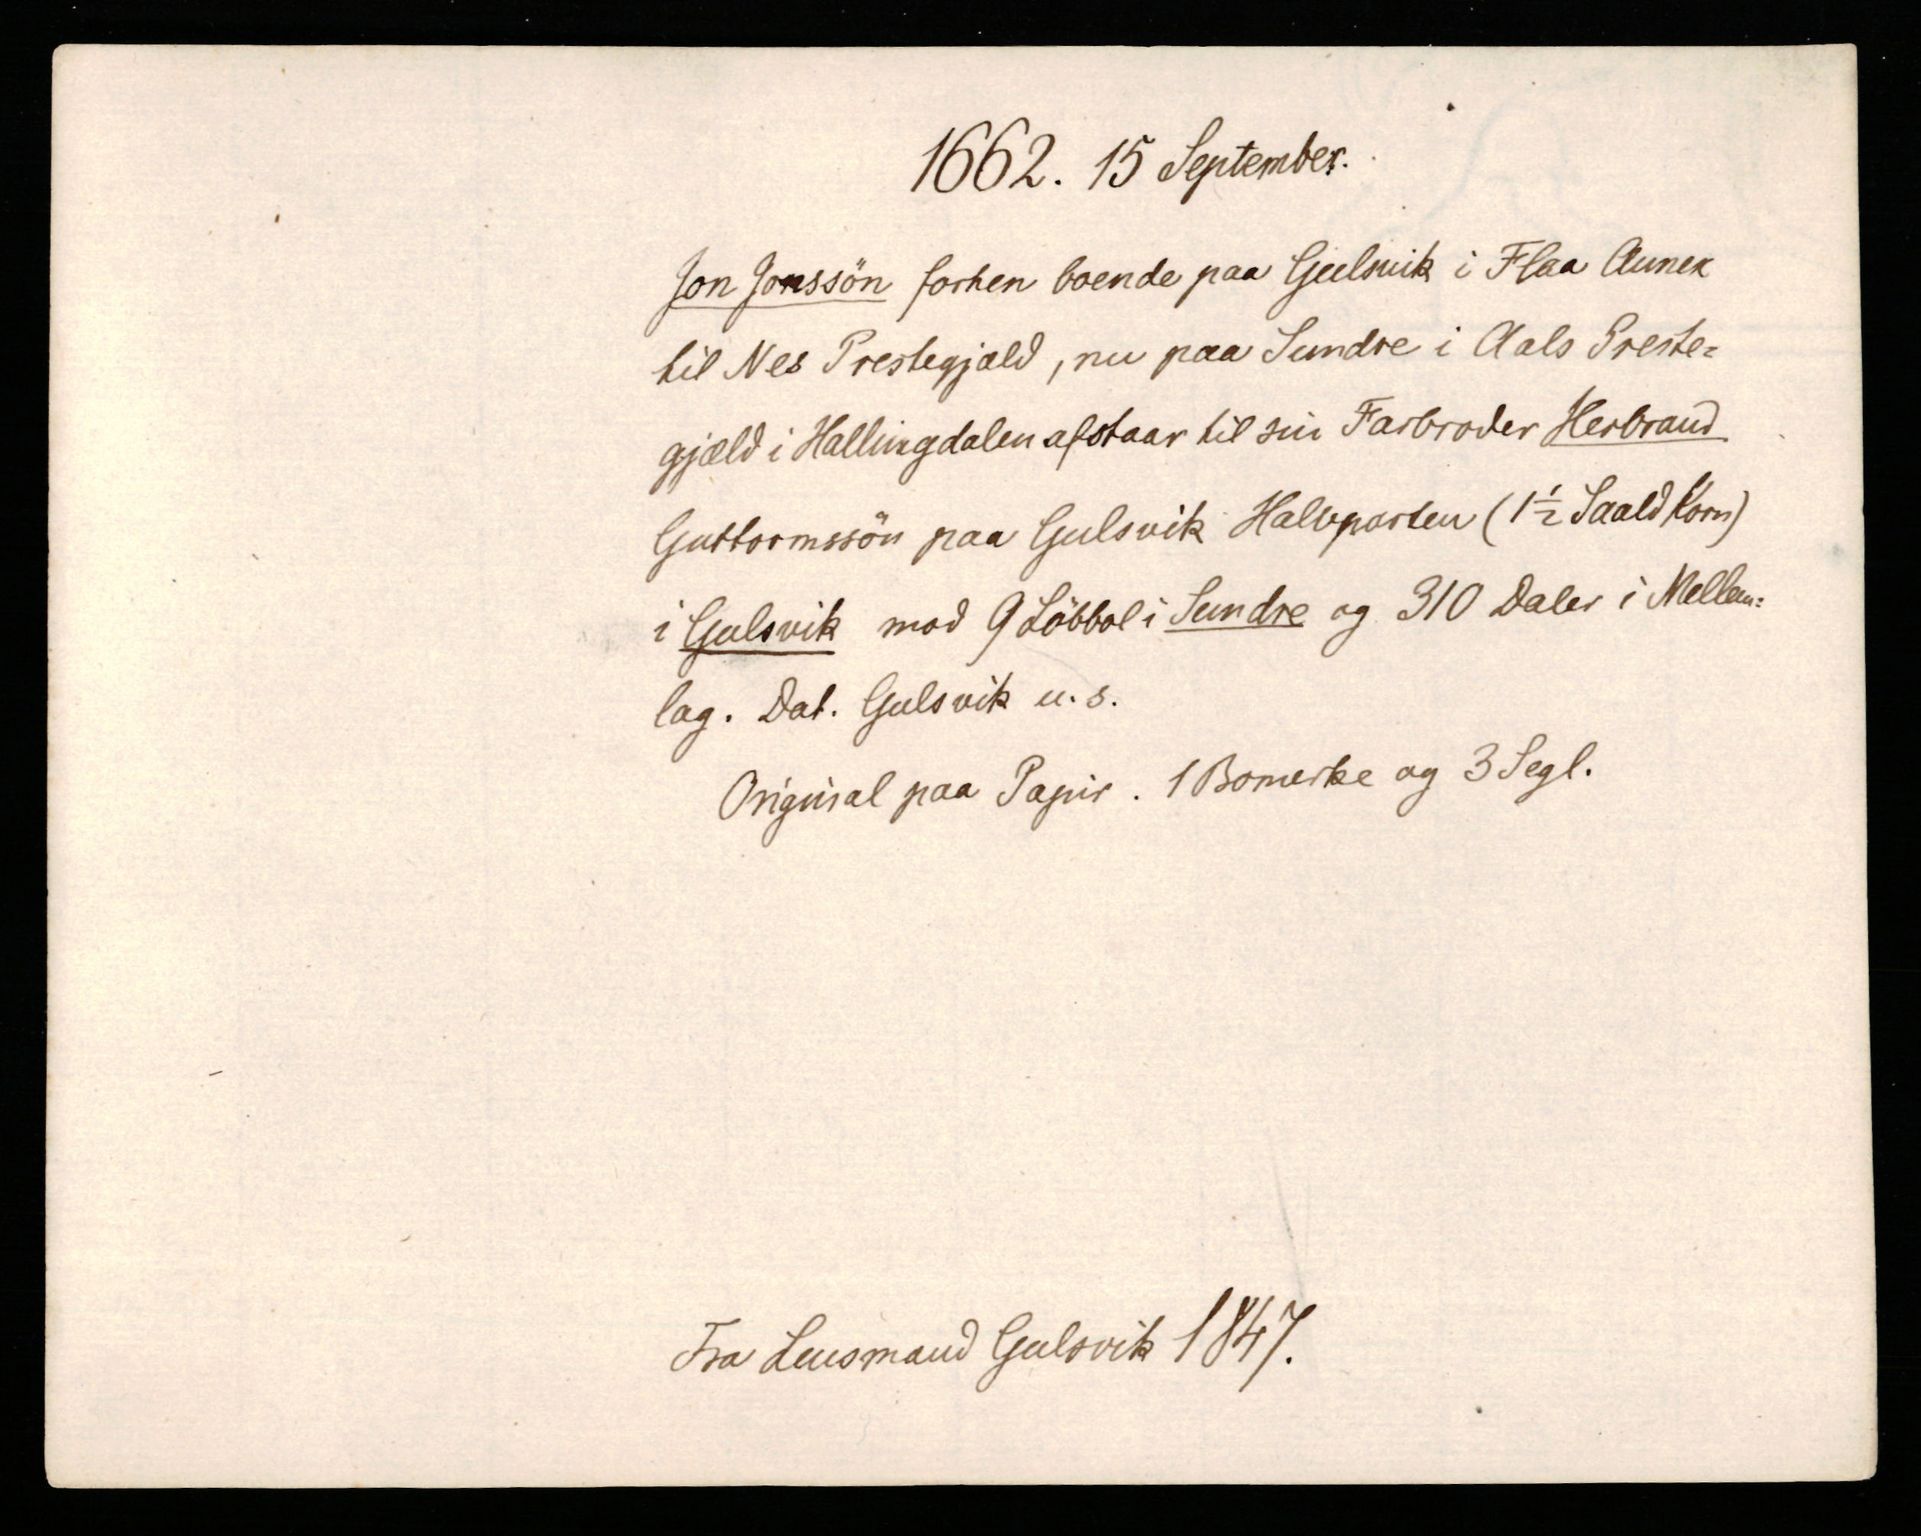 1662. 15 September.
Jon Jonssön forhen boende paa Gulsvik i Flaa Annex
til Nes Prestegjæld, nu paa Sundre i Aals Preste=
gjæld i Hallingdalen afstaar til sin Farbroder Herbrand
Guttormssön paa Gulsvik Halvparten (1½ Saald Korn)
i Gulsvik mod 9 Löbbol i Sundre og 310 Daler i Mellem=
lag. Dat. Gulsvik u. s.
Original paa Papir. 1 Bomerke og 3 Segl.
Fra Lensmand Gulsvik 1847.